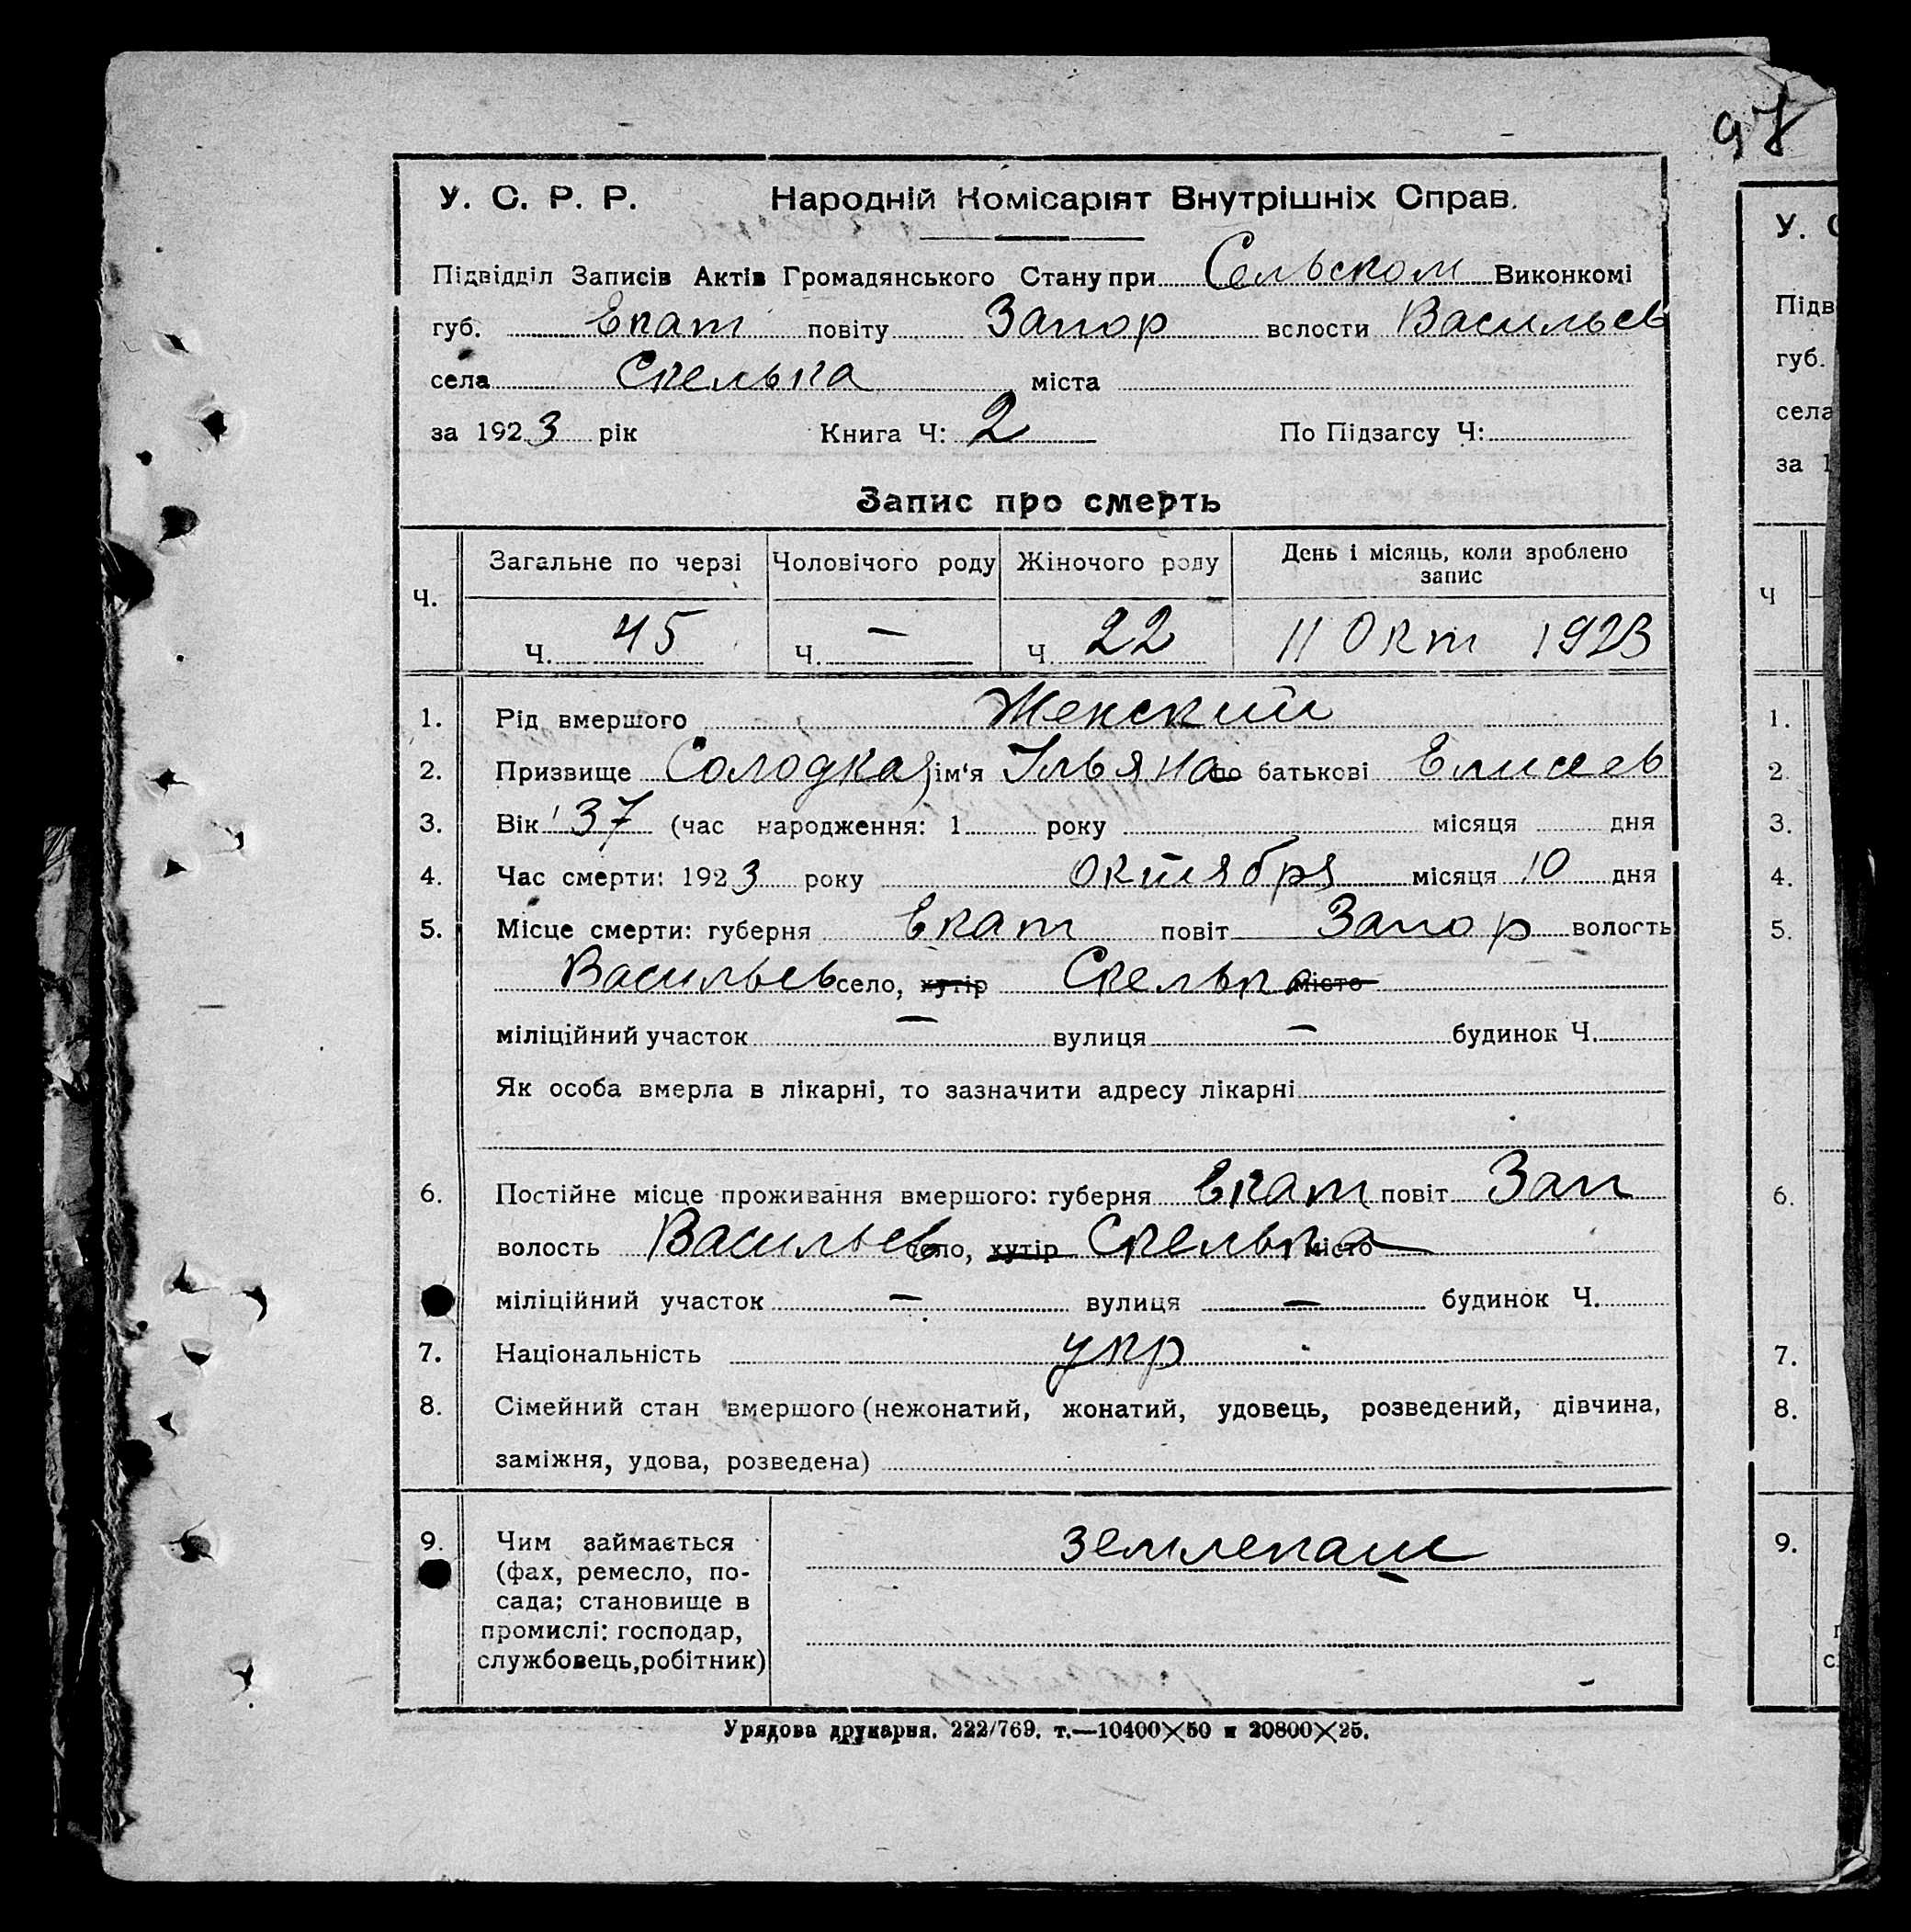 97
У. С. Р. Р. Народній Комісаріят Внутрішніх Справ.
Підвідділ Записів Актів Громадянського Стану при Сельском Виконкомі
губ. Екат повіту Запор волости Васильев
села Скелька міста
за 1923 рік Книга Ч: 2 По Підзагсу Ч:
Запис про смерть
Ч. Загальне по черзі Чоловічого роду Жіночого роду День і місяць, коли зроблено запис
Ч. 45 Ч. — Ч. 22 11 Окт 1923
1. Рід вмершого Женский
2. Призвище Солодкая ім'я Ульяна по батькові Елисеев
3. Вік 37 (час народження: 1 року місяця дня
4. Час смерти: 1923 року октября місяця 10 дня
5. Місце смерти: губерня Екат повіт Запор волость
Васильев село, хутір Скелька місто
міліційний участок — вулиця — будинок Ч.
Як особа вмерла в лікарні, то зазначити адресу лікарні
6. Постійне місце проживання вмершого: губерня Екат повіт Зап
волость Васильев село, хутір Скелька місто
міліційний участок — вулиця — будинок Ч.
7. Національність укр
8. Сімейний стан вмершого (нежонатий, жонатий, удовець, розведений, дівчина,
заміжня, удова, розведена)
9. Чим займається землепаш
(фах, ремесло, по-
сада; становище в
промислі: господар,
службовець, робітник)
Урядова друкарня. 222/769. т.—10400×50 и 20800×25.
У. С
Підв
губ.
села
за 1
Ч
1.
2.
3.
4.
5.
6.
7.
8.
9.